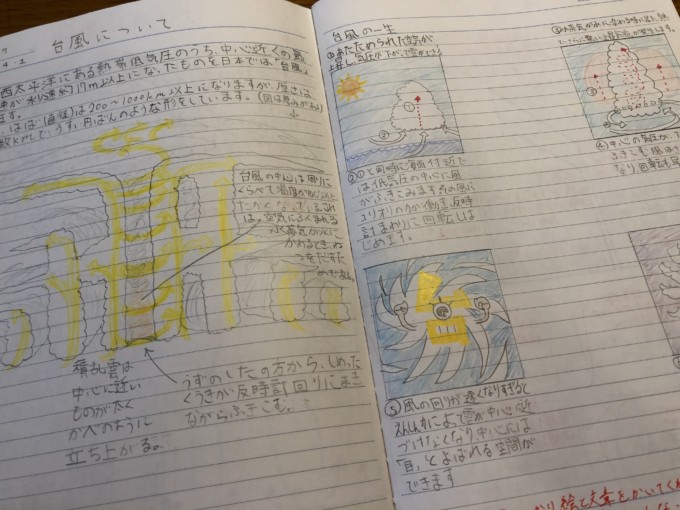 台風について
西太平洋にある熱帯低気圧のうち、中心近くの風
速が 秒速約17m以上になったものを日本では、「台風」
はば(直径)は200〜1000km以上になりますが、厚さは
うすい円ばんのような形をしています。
台風の中心は周りに
くらべて温度が
たかくなっている。これ
は、空気にふくまれる
水蒸気が水に
かわるとき、ね
つをだすた
めである。
積乱雲は
中心に近い
ものが太く
かべのように
立ち上がる。
うずのしたの方から、しめった
くうきが反時計回りにまき
ながらふきこむ。
台風の一生
①あたためられた空気が
上昇し、気圧が下がって雲ができる
②①と同時に海面付近で
は低気圧の中心に風
がふきこみます。その風に
コリオリの力が働き、反時
計まわりに回転しは
じめます。
④中心の気圧が
⑤風の回りが速くなりすぎると
えんしん力によって雲が中心に近
づけなくなり中心には
「目」とよばれる空間が
できます
絵と文章をかいてくれ